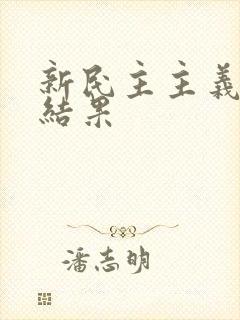 新民主主義
結果
潘志明